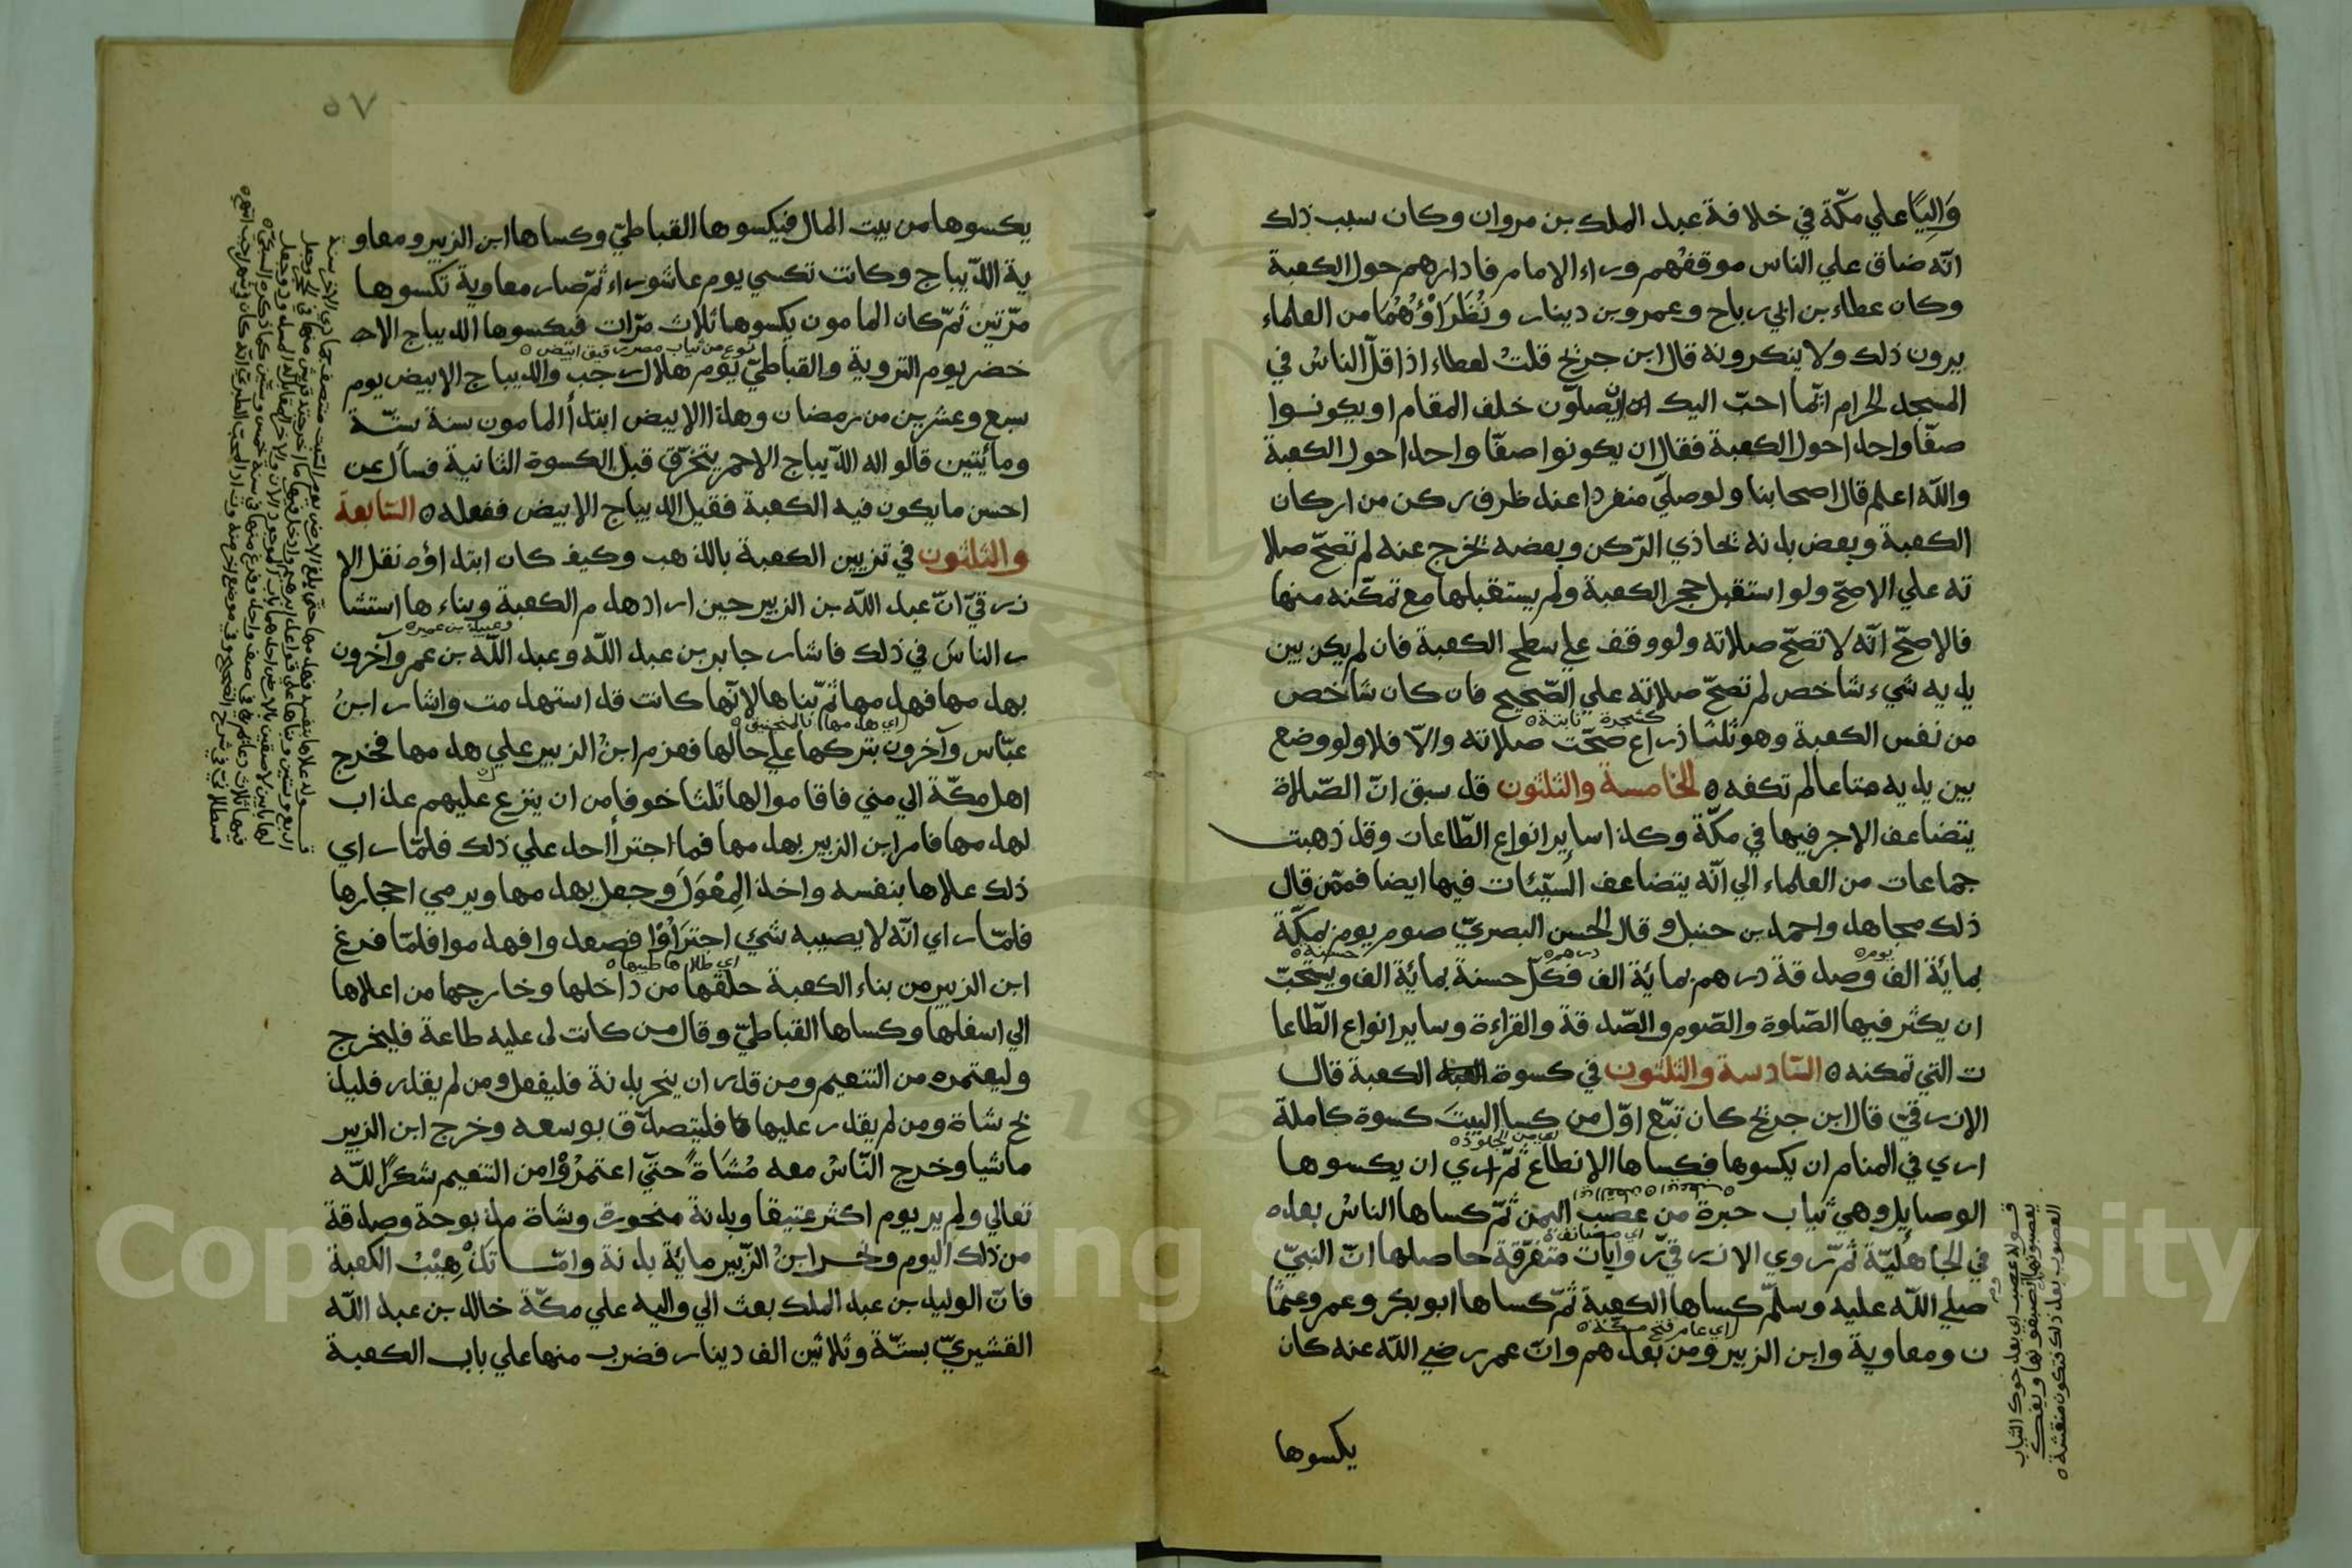 وَالِيًا علي مكّة في خلافة عبد الملك بن مروان وكان سبب ذلك
انّه ضاق علي الناس موقفهم وراء الامام فادارهم حول الكعبة
وكان عطاء بن ابي رباح وعمرو بن دينار ونُظَرَاؤُهُمَا من العلماء
يرون ذلك ولا ينكرونه قال ابن جريج قلتُ لعطاء اذا قلّ الناسُ في
المسجد الحرام ايّما احبّ اليك ان يصلّون خلف المقام او يكونوا
صفّا واحدا حول الكعبة فقال ان يكونوا صفّا واحدا حول الكعبة
والله اعلم قال اصحابنا ولو صلّي منفردا عند طرف ركن من اركان
الكعبة وبعض بدنه تحاذي الرّكن وبعضه تخرج عنه لم تصحّ صلا
ته علي الاصحّ ولو استقبل حجر الكعبة ولم يستقبلها مع تمكّنه منها
فالاصحّ انّه لا تصحّ صلاته ولو وقف علي سطح الكعبة فان لم يكن بين
يديه شيء شاخص لم تصحّ صلاته علي الصّحيح فان كان شاخص
كشجرة نابتة ه
من نفس الكعبة وهو ثلثا ذراع صحّت صلاته والّا فلا ولو وضع
بين يديه متاعا لم تكفه ه الخامسة والثلثون قد سبق انّ الصّلاة
يتضاعف الاجر فيها في مكّة وكذا ساير انواع الطّاعات وقد ذهبت
جماعات من العلماء الي انّه يتضاعف السّيّئات فيها ايضا فممّن قال
ذلك مجاهد واحمد بن حنبل وقال الحسن البصريّ صوم يوم بمكّة
يوم ه درهم ه حسنة ه
بمائة الف وصدقة درهم بمائة الف فكلّ حسنة بمائة الف ويستحبّ
ان يكثر فيها الصّلوة والصّوم والصّدقة والقراءة وساير انواع الطّاعا
ت التي تمكنه ه السّادسة والثلثون في كسوة الكعبة قال
الازرقيّ قال ابن جريج كان تبّع اوّل من كسا البيتَ كسوة كاملة
من الجلود ه
اري في المنام ان يكسوها فكساها الانطاع ثمّ اري ان يكسوها
الوصايل وهي ثياب حبرة من عصب اليمن ثمّ كساها الناسُ بعده
في الجاهليّة ثمّ روي الازرقيّ روايات متفرّقة حاصلها انّ النبيّ
صلي الله عليه وسلّم كساها الكعبة ثمّ كساها ابو بكر وعمر وعثما
اي عام فتح مكّة ه
ن ومعاوية وابن الزبير ومن بعدهم وانّ عمر رضي الله عنه كان
يكسوها
قوله عصب اي
العصوب بعد ذلك فتكون منقشة ه
٥٧
يكسوها من بيت المال فيكسوها القباطيّ وكساها ابن الزبير ومعاو
ية الدّيباج وكانت تكسي يوم عاشوراء ثمّ صار معاوية تكسوها
مرّتين ثمّ كان المامون يكسوها ثلاث مرّات فيكسوها الديباج الاحـ
نوع من ثياب مصر رقيق ابيض ه
خضر يوم التروية والقباطيّ يوم هلال رجب والديباج الابيض يوم
سبع وعشرين من رمضان وهذا الابيض ابتدأ المامون سنة ستّة
ومأيتين قالوا له الدّيباج الاحمر يتخرّق قبل الكسوة الثانية فسأل عن
احسن ما يكون فيه الكعبة فقيل الديباج الابيض ففعله ه السّابعة
والثلثون في تزيين الكعبة بالذهب وكيف كان ابتداؤه نقل الا
زرقيّ انّ عبد الله بن الزبير حين اراد هدم الكعبة وبناءها استشا
وعبيد بن عمير ه
ر الناسَ في ذلك فاشار جابر بن عبد الله وعبد الله بن عمر وآخرون
بهدمها فهدمها ثمّ بناها لانّها كانت قد استهدمت واشار ابنُ
اي هدمها بالمنجنيق ه
عبّاس وآخرون بتركها علي حالها فعزم ابنُ الزبير علي هدمها فخرج
اهل مكّة الي مني فاقاموا لها ثلثا خوفا من ان ينزع عليهم عذاب
لهدمها فامر ابن الزبير بهدمها فما اجترأ احد علي ذلك فلمّا راي
ذلك علاها بنفسه واخذ المِعْوَلَ وجعل يهدمها ويرمي احجارها
فلمّا راي انّه لا يصيبه شئ اجترَاؤُا فصعدوا فهدموا فلمّا فرغ
اي طلاها طيبها ه
ابن الزبير من بناء الكعبة خلّقها من داخلها وخارجها من اعلاها
الي اسفلها وكساها القباطيّ وقال من كانت لي عليه طاعة فليخرج
وليعتمره من التنعيم ومن قدر ان ينحر بدنة فليفعل ومن لم يقدر فليذ
بح شاة ومن لم يقدر عليها فليتصدّق بوسعه وخرج ابن الزبير
ماشيا وخرج النّاسُ معه مُشَاةً حتّي اعتمرُوْا من التنعيم شكرًا للّه
تعالي ولم ير يوم اكثر عتيقا وبدنة منحورة وشاة مذبوحة وصدقة
من ذلك اليوم ونحر ابنُ الزّبير مائة بدنة وامّا تَذْهِيْبُ الكعبة
فانّ الوليد بن عبد الملك بعث الي واليه علي مكّة خالد بن عبد اللّه
القشيريّ بستّة وثلاثين الف دينار فضرب منها علي باب الكعبة